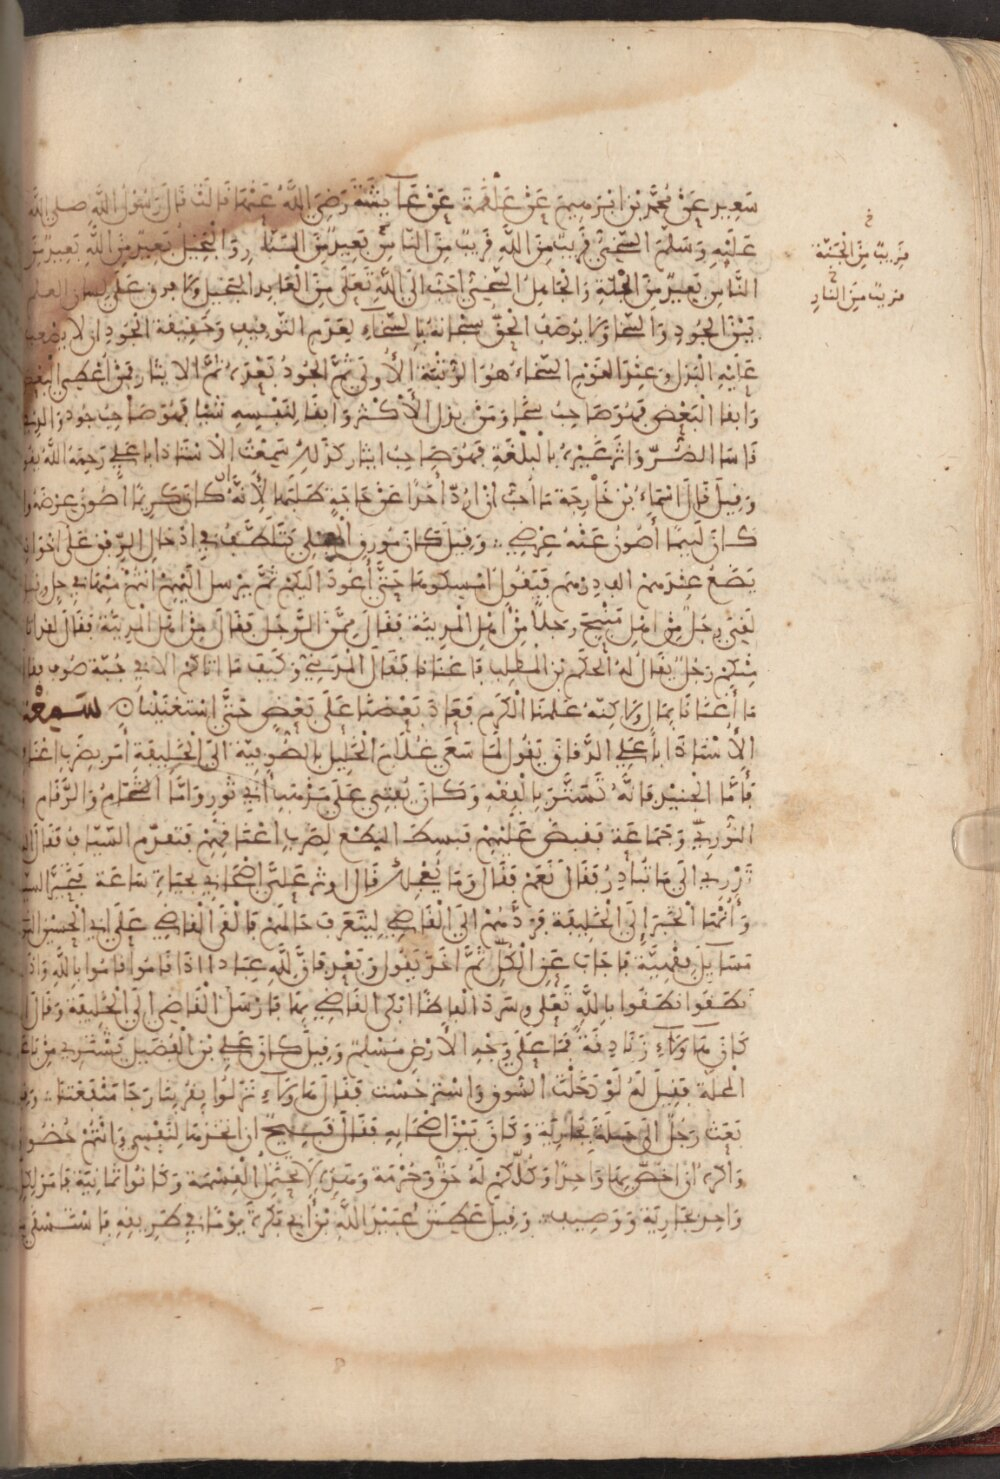 سَعِيدٍ عَنْ مُحَمَّدِ بْنِ إِبْرَهِيمَ عَنْ عَلْقَمَةَ عَنْ عَآيِشَةَ رَضِيَ اللَّهُ عَنْهَا قَالَتْ قَالَ رَسُولُ اللَّهِ صلى الله
عَلَيْهِ وَسَلَّمَ السَّخِيُّ قَرِيبٌ مِنَ اللَّهِ قَرِيبٌ مِنَ النَّاسِ بَعِيدٌ مِنَ النَّارِ وَالْبَخِيلُ بَعِيدٌ مِنَ اللَّهِ بَعِيدٌ مِنَ
النَّاسِ بَعِيدٌ مِنَ الْجَنَّةِ وَالْجَاهِلُ السَّخِيُّ أَحَبُّ إِلَى اللَّهِ تَعَلَى مِنَ الْعَابِدِ الْبَخِيلِ ولا فرق على لسان العلم
بَيْنَ الجُودِ وَالسَّخَا وَلا يُوصَفُ الْحَقُّ سبحانهُ بِالسَّخَآءِ لِعَدَمِ التَّوقِيفِ وَحَقِيقَة الْجُودِ أن لا يصعب
عَلَيْهِ الْبَذْلُ وَعِنْدَ القَوْمِ السَّخَاءُ هُوَ الرُّتْبَةُ الأُولَى ثُمَّ الجُودُ بَعْدَهُ ثُمَّ الايثار فَمَنْ أَعْطَى الْبَعْضَ
وَأبقا الْبَعْضَ فَهُوَ صَاحِبُ سَخَا وَمَنْ بَذَلَ الأَكْثَرَ وَأبقَا لِنَفْسِهِ شَيْئا فَهُوَ صَاحِبُ جُود وَالذي
قَاسَا الضُّرَّ وَآثَرَ غَيْرَهُ بِالْبُلْغَةِ فَهُوَ صَاحِبُ ايثار كَذَلِكَ سَمِعْتُ الأسْتَاذ أبا عَلِي رَحِمَهُ اللَّهُ يقول
وَقِيلَ قَالَ أَسْمَاءُ بْنُ خَارِجَةَ مَا أُحِبُّ أَنْ أَرُدَّ أَحَدًا عَنْ حَاجَةٍ طَلَبَهَا لأَنَّهُ ان كَانَ كَرِيمًا أَصُونُ عِرْضَهُ وان
كَانَ لَئِيمًا أَصُونُ عَنْهُ عِرْضِي وَقِيلَ كَانَ مُورِقٌ الْعِجْلِي يَتَلَطَّفُ فِي إِدْخَالِ الرِّفْقِ عَلَى إِخْوَانِهِ
يَضَعُ عِنْدَهمْ الف دِرْهم فَيَقُولُ أمْسِكُوهَا حَتَّى أَعُودَ الَيْكُمْ ثُمَّ يرْسل الَيْهِمْ أنْتُمْ مِنْهَا فِي حِل وَقيل
لَقِيَ رَجلٌ مِنْ أهْلِ مَنْبِجَ رَجلاً مِنْ أَهْلِ الْمَدِينَةِ فَقَالَ مِمَّنْ الرَّجُل فَقَالَ مِنْ أهْلِ الْمَدِينَةِ فَقَالَ لقد أتانا
مِنْكُمْ رَجُلٌ يُقَالُ لَهُ الحَكَمُ بْنُ المطَّلِبِ فَأَغْنَانَا فَقَالَ الْمَدَنِيُّ وَكَيْفَ مَا أتَاكُمْ الا فِي جُبَّة صُوفٍ فقال
مَا أَغْنَانَا بِمَالٍ وَلَكِنَّهُ عَلَّمَنَا الْكَرَمَ فَعَادَ بَعْضُنَا عَلَى بَعْضٍ حَتَّى اسْتَغْنَيْنَا سَمِعْتُ
الأُسْتَاذَ أبَا عَلِي الدَّقَاقَ يَقُولُ لَمَّا سَعَى غُلاَمُ الْخَلِيلِ بِالصُّوفِيَّةِ إلَى الْخَلِيفَةِ أَمَرَ بِضَرْبِ أعْنَاقِهِمْ
فَأَمَّا الْجُنَيْدُ فَإنَّهُ تَسَتَّرَ بِالْفِقْهِ وَكَانَ يُفْتِي عَلَى مَذْهَبِ أَبِي ثَوْرٍ وَأمَّا الشَّحَّامُ وَالرَّقَّام
النُّورِيُّ وَجَمَاعَة فَقُبِضَ عَلَيْهِمْ فَبسطَ النِّطْعُ لِضَرْبِ أعْنَاقِهِمْ فَتَقَدَّمَ النُّورِيُّ فَقَالَ السَّيَّافُ
تَدْرِي إلَى مَا تُبَادِرُ فَقَالَ نَعَمْ فَقَالَ وَمَا يُعْجِلُكَ قَالَ أُوثِرُ عَلَى أصْحَابِي بِحَيَاةِ سَاعَة فَتَحَيَّرَ السياف
وَأَنْهَا الْخَبَرَ إلَى الْخَلِيفَةِ فَرَدَّهُمْ إلَى الْقَاضِي لِيَتَعَرَّفَ حَالَهُمْ فَألْقَى القَاضِي عَلَى أبِي الْحُسَيْنِ النوري
مَسَايِلَ فِقْهِيَّة فَأَجَابَ عَنِ الْكُلِّ ثُمَّ أَخَذَ يَقُولُ وَبَعْدُ فَإنَّ لِلَّهِ عِبَادا إذَا قَامُوا قَامُوا بِاللَّهِ وَإذَا
نَطَقُوا نَطَقُوا بِاللَّهِ تَعَلَى وسَرَدَ ألفاظًا أبْكَى القَاضِي بِهَا فَأرْسَلَ الْقَاضِي إلَى الْخَلِيفَةِ وَقَالَ إن
كَانَ هَآؤُلآءِ زَنَادِقَةً فَمَا عَلَى وَجْهِ الأَرْضِ مُسْلِمٌ وَقِيلَ كَانَ عَلِيُّ بْنُ الْفُضَيْلِ يَشْتَرِي مِنْ باعة
المحلة فَقِيلَ لَهُ لَوْ دَخَلْتَ السُّوقَ وَاسْتَرْخَصْتَ فَقَالَ هَآؤُلآءِ نَزَلُوا بِقُرْبِنَا رَجَاءَ مَنْفَعَتِنَا وَقِيلَ
بَعَثَ رَجُلٌ إلَى جَبَلَةَ بِجَارِيَّةٍ وَكَانَ بَيْنَ أصْحَابِهِ فَقَالَ قَبِيحٌ أن أتخذهَا لِنَفْسِي وَأنْتُمْ حُضُورٌ
وَأكْرَهُ أنْ أخُصَّ بِهَا وَاحِدًا وَكُلُّكُمْ لَهُ حَقٌّ وَحُرْمَة وَهَذِهِ لا تَحْتَمِلُ الْقِسْمَةَ وَكَانُوا ثَمَانِيَّة فَأمَرَ لِكل
وَاحِدٍ بِجَارِيَةٍ وَوَصِيفٍ وَقِيلَ عَطِشَ عُبَيْدُ اللَّهِ بْنُ أبِي بَكْرَةَ يَوْمًا فِي طَرِيقِهِ فَاسْتَسْقَى
خ
قَرِيبٌ مِنَ الْجَنَّةِ
خ
قريبٌ مِنَ النارِ